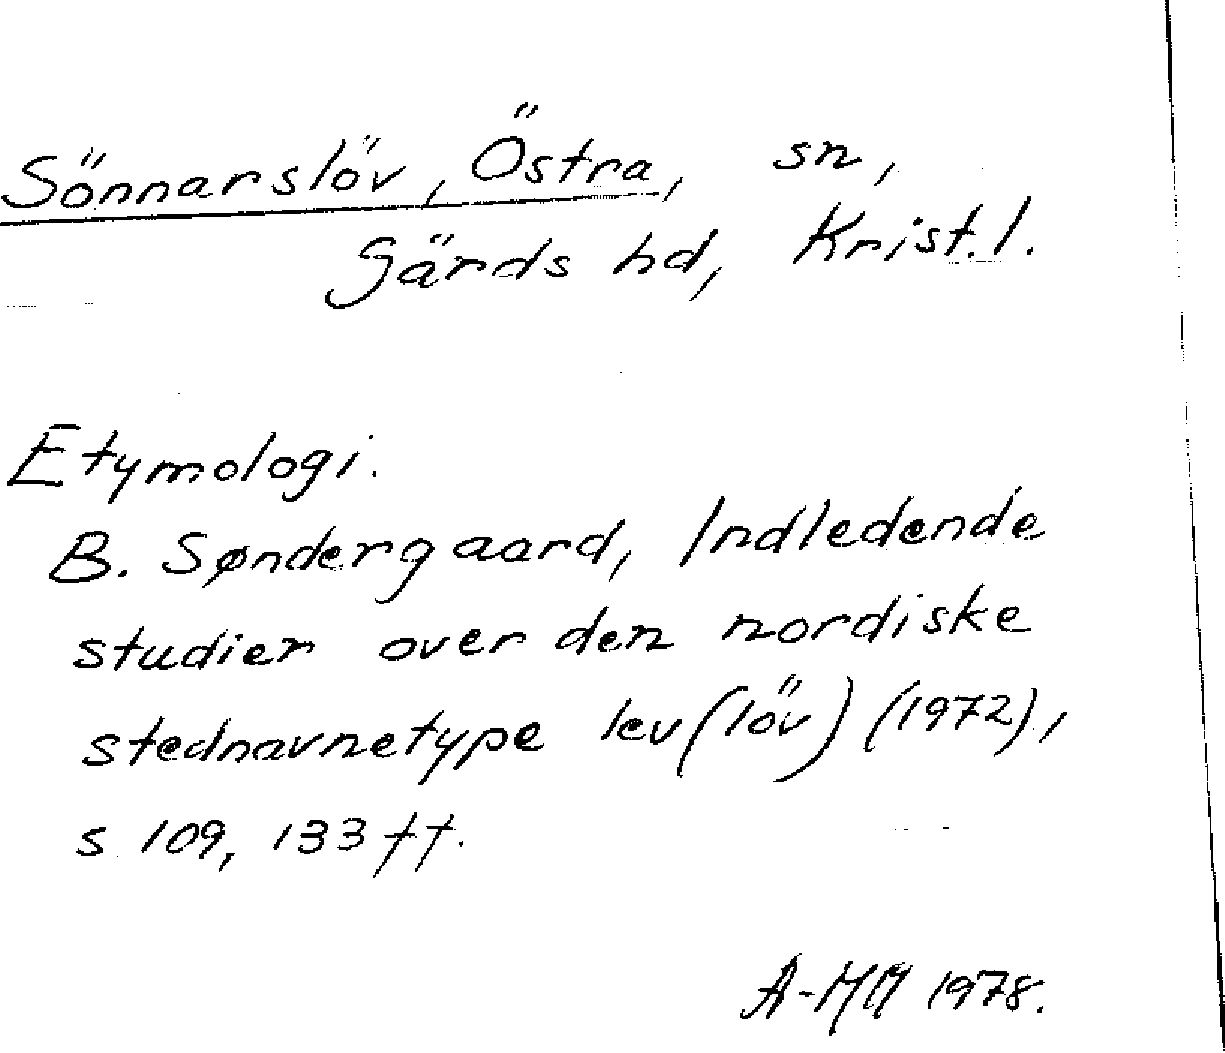 Sönnarslöv, Östra, sn,
Gärds hd, Krist.l.
Etymologi.
B. Søndergaard, Indledende
studier over den nordiske
stednavnetype lev(löv) (1972),
s 109, 133 ff.
A-MM 1978.